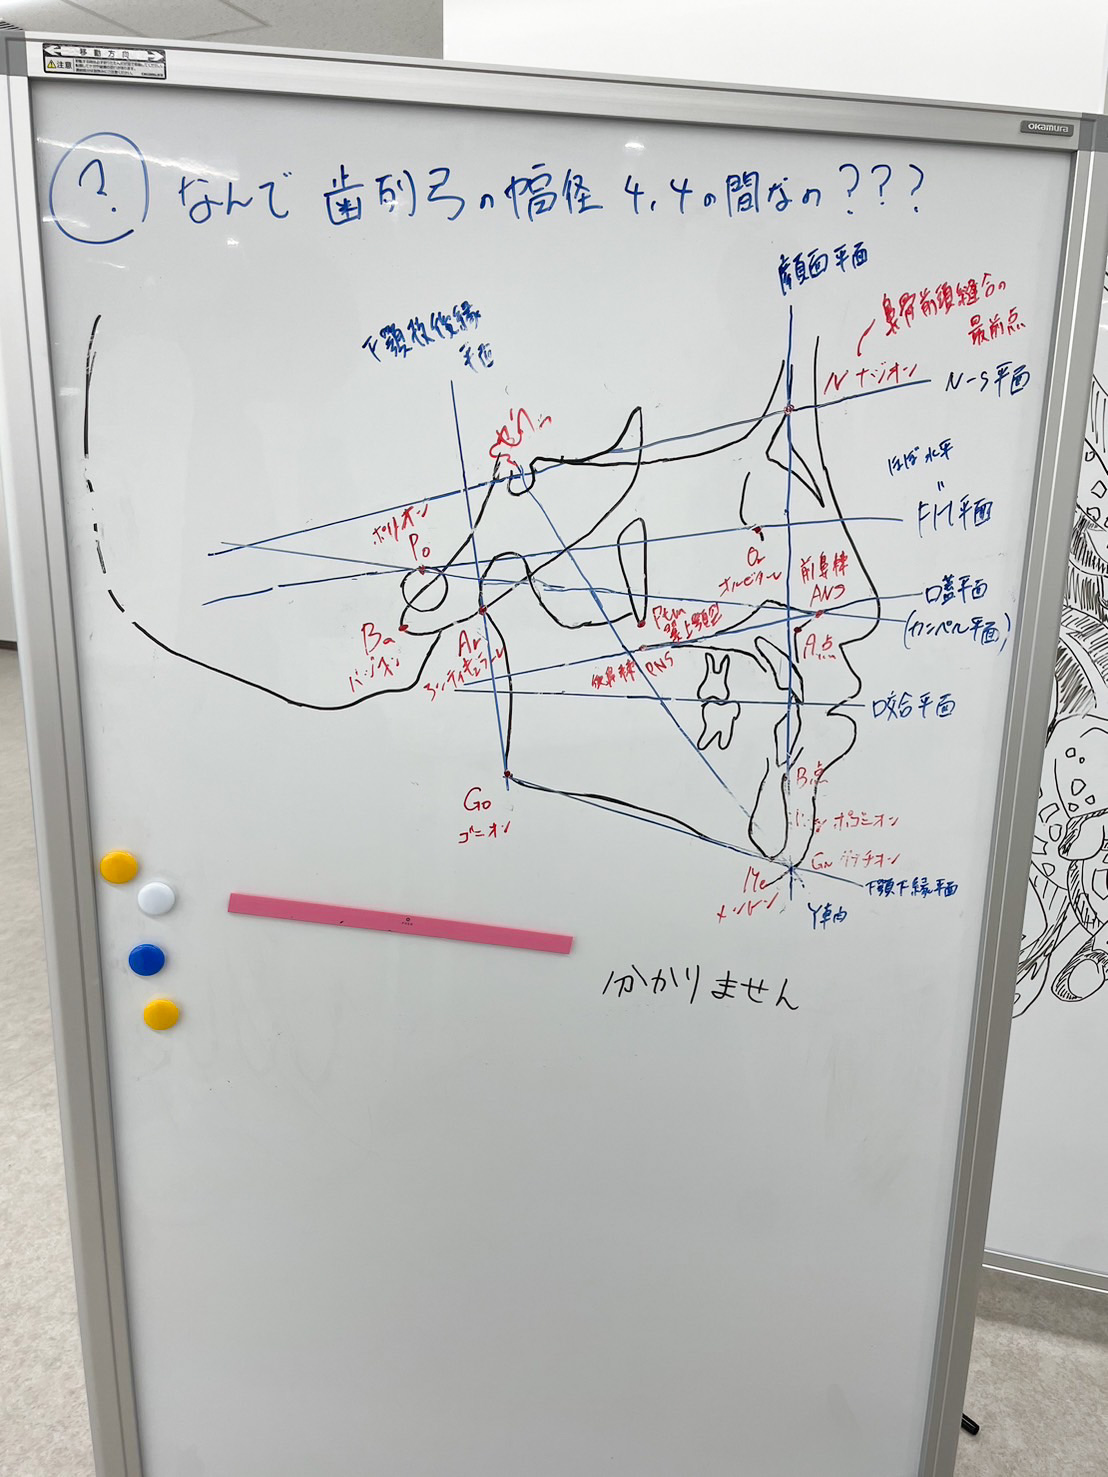 移動方向
注意
okamura
? なんで 歯列弓の幅径 4,4の間なの???
顔面平面
鼻骨前頭縫合の
最前点
下顎枝後縁
平面
N ナジオン
N-S平面
セラ
ほぼ水平
〃
FH平面
ポリオン
Po
Or
オルビターレ
前鼻棘
ANS
口蓋平面
(カンペル平面)
Ptm
翼上顎裂
A点
Ba
バジオン
Ar
アーティキュラーレ
後鼻棘 PNS
咬合平面
B点
Go
ゴニオン
ポゴニオン
Gn グナチオン
Me
メントン
下顎下縁平面
Y軸
分かりません